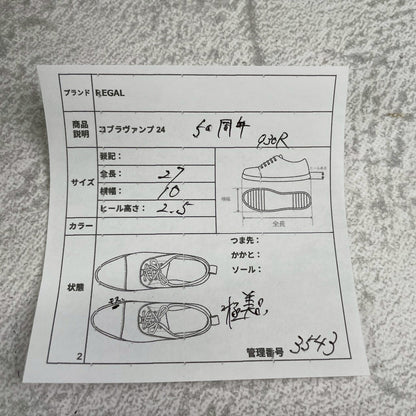 ブランド REGAL
商品説明 コブラヴァンプ 24
930R
サイズ
表記：
全長： 27
横幅： 10
ヒール高さ： 2.5
ヒール高さ
横幅
全長
カラー
状態
つま先：
かかと：
ソール：
極美品
2
管理番号 3543